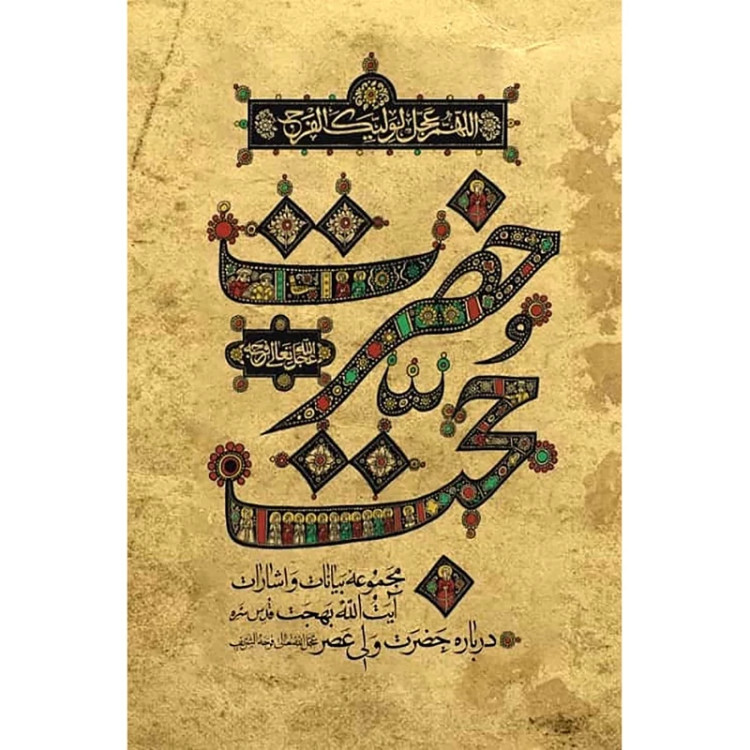 اللهم عجل لولیک الفرج
حضرت
حجت
عجل الله تعالی فرجه
مجموعه بیانات و اشارات
آیت الله بهجت قدس سره
درباره حضرت ولی عصر عجل الله تعالی فرجه الشریف